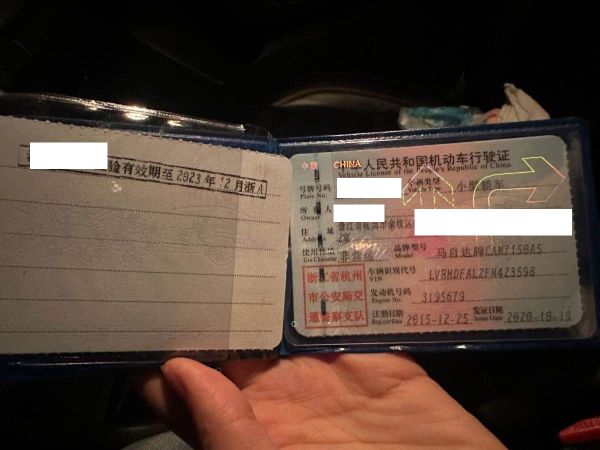 验有效期至2023年12月浙A
中国 CHINA 人民共和国机动车行驶证
Vehicle License of the People's Republic of China
号牌号码 Plate No. 车辆类型 Vehicle Type 小型轿车
所有人 Owner
住址 Address 浙江省杭州市余杭区
使用性质 Use Character 非营运 品牌型号 Model 马自达牌CAM7150A5
浙江省杭州 车辆识别代号 VIN LVRHDFALZFN423598
市公安局交 发动机号码 Engine No. 3195679
通警察支队 注册日期 Register Date 2015-12-25 发证日期 Issue Date 2020-10-19